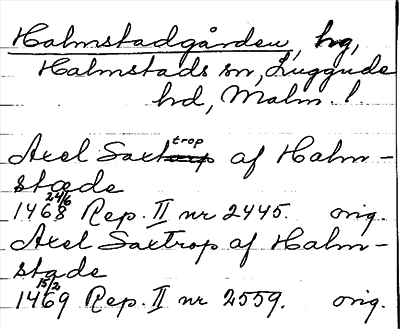 Halmstadgården, hg,
Halmstads sn, Luggude
hd, Malm. l.
Axel Saxtrop af Halm-
stæde
1468 24/6 Rep. II nr 2445. orig.
Axel Saxtrop af Halm-
stade
1469 15/2 Rep. II nr 2559. orig.